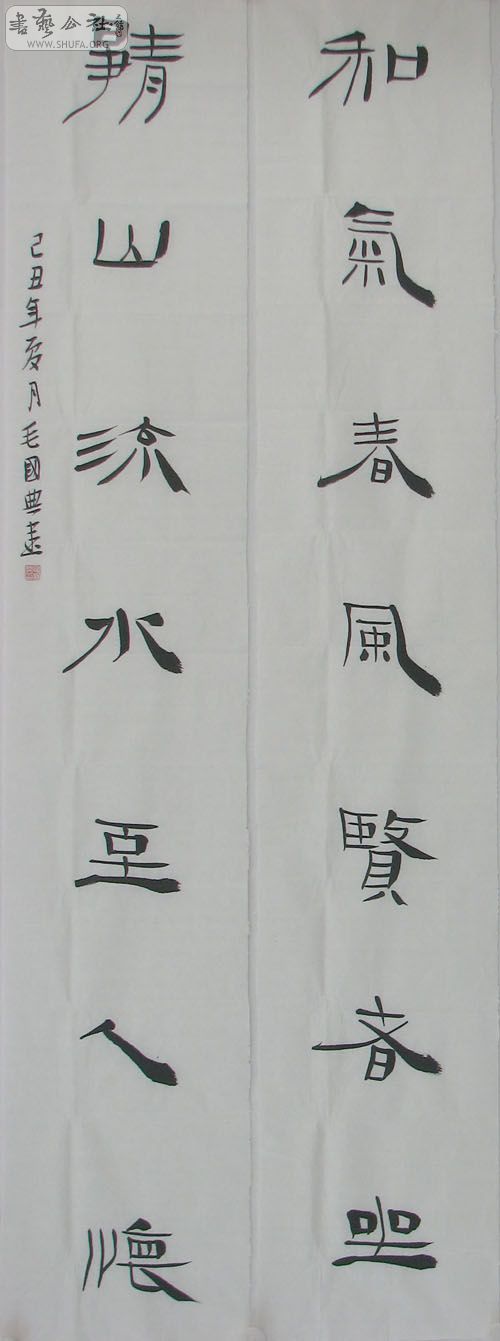 和氣春風賢者坐
靜山流水至人懷
己丑年夏月毛國典書
書藝公社
WWW.SHUFA.ORG